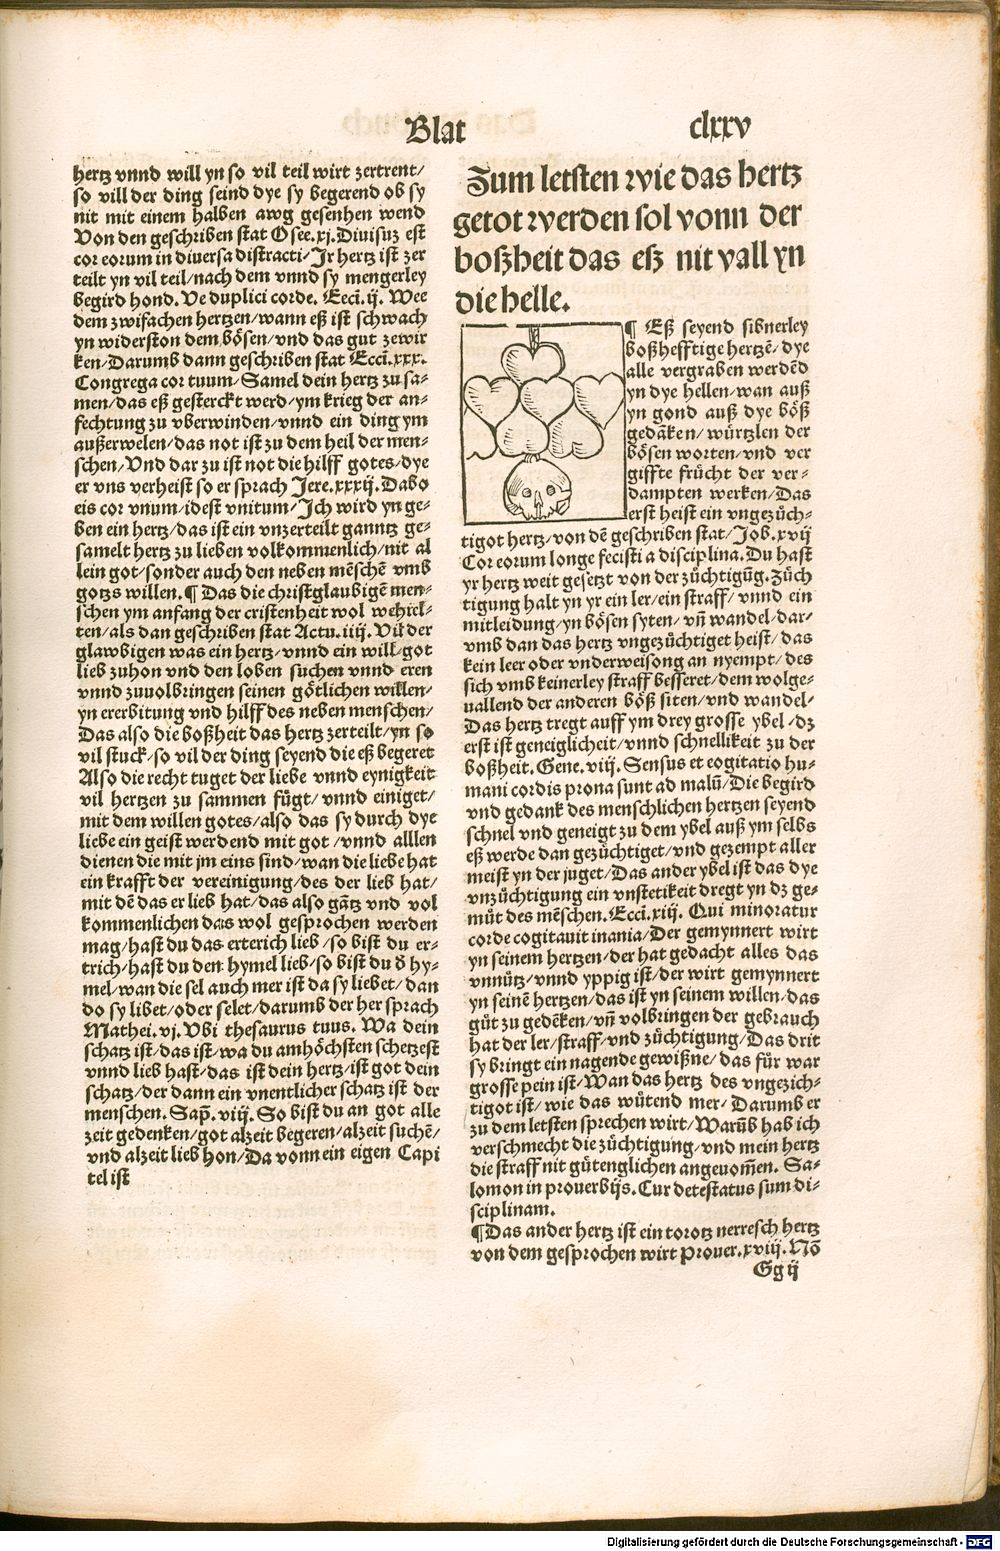 Blat clxxv
hertz vnnd will yn so vil teil wirt zertrent/
so vill der ding seind dye sy begerend ob sy
nit mit einem halben awg gesenhen wend
Von den geschriben stat Osee.xj. Diuisuz est
cor eorum in diuersa distracti/Jr hertz ist zer
teilt yn vil teil/nach dem vnnd sy mengerley
begird hond. Ve duplici corde. Ecci.ij. Wee
dem zwifachen hertzen/wann eß ist schwach
yn widerston dem bösen/vnd das gut zewir
ken/Darumb dann geschriben stat Ecci.xxx.
Congrega cor tuum/Samel dein hertz zu sa-
men/das eß gesterckt werd/ym krieg der an-
fechtung zu vberwinden/vnnd ein ding ym
außerwelen/das not ist zu dem heil der men-
schen/Vnd dar zu ist not die hilff gotes/dye
er vns verheist so er sprach Jere.xxxij. Dabo
eis cor vnum/idest vnitum/Jch wird yn ge-
ben ein hertz/das ist ein vnzerteilt ganntz ge-
samelt hertz zu lieben volkommenlich/nit al
lein got/sonder auch den neben mēschē vmb
gotzs willen.¶ Das die christglaubigē men-
schen ym anfang der cristenheit wol wehiel-
ten/als dan geschriben stat Actu.iiij. Vñ der
glawbigen was ein hertz/vnnd ein will/got
lieb zuhon vnd den loben suchen vnnd eren
vnnd zuuolbringen seinen götlichen willen/
yn ererbitung vnd hilff des neben menschen/
Das also die boßheit das hertz zerteilt/yn so
vil stuck/so vil der ding seyend die eß begeret
Also die recht tuget der liebe vnnd eynigkeit
vil hertzen zu sammen fügt/vnnd einiget/
mit dem willen gotes/also das sy durch dye
liebe ein geist werdend mit got/vnnd alllen
dienen die mit jm eins sind/wan die liebe hat
ein krafft der vereinigung/des der lieb hat/
mit dē das er lieb hat/das also gātz vnd vol
kommenlichen das wol gesprochen werden
mag/hast du das erterich lieb/so bist du er-
trich/hast du den hymel lieb/so bist du ð hy-
mel/wan die sel auch mer ist da sy liebet/dan
do sy libet/oder selet/darumb der her sprach
Mathei.vj. Vbi thesaurus tuus. Wa dein
schatz ist/das ist/wa du am höchsten schetzest
vnnd lieb hast/das ist dein hertz/ist got dein
schatz/der dann ein vnentlicher schatz ist der
menschen. Sap̄.viij. So bist du an got alle
zeit gedenken/got alzeit begeren/alzeit suchē/
vnd alzeit lieb hon/Da vonn ein eigen Capi
tel ist
Zum letsten wie das hertz
getot werden sol vonn der
boßheit das eß nit vall yn
die helle.
¶ Eß seyend sibnerley
boßhefftige hertzē/dye
alle vergraben werdēd
yn dye hellen/wan auß
yn gond auß dye böß
gedāken/würtzlen der
bösen worten/vnd ver
giffte frücht der ver-
dampten werken/Das
erst heist ein vngezüch-
tigot hertz/von dē geschriben stat/Job.xvij
Cor eorum longe fecisti a disciplina. Du hast
yr hertz weit gesetzt von der züchtigūg. Züch
tigung halt yn yr ein ler/ein straff/vnnd ein
mitleidung/yn bösen syten/vñ wandel/dar-
vmb dan das hertz vngezüchtiget heist/das
kein leer oder vnderweisong an nyempt/des
sich vmb keinerley straff besseret/dem wolge-
uallend der anderen böß siten/vnd wandel/
Das hertz tregt auff ym drey grosse ybel/dz
erst ist geneiglicheit/vnnd schnellikeit zu der
boßheit. Gene.viij. Sensus et cogitatio hu-
mani cordis prona sunt ad malū/Die begird
vnd gedank des menschlichen hertzen seyend
schnel vnd geneigt zu dem ybel auß ym selbs
eß werde dan gezüchtiget/vnd gezempt aller
meist yn der juget/Das ander ybel ist das dye
vnzüchtigung ein vnstetikeit dregt yn dz ge-
müt des mēschen. Ecci.xiij. Qui minoratur
corde cogitauit inania/Der gemynnert wirt
yn seinem hertzen/der hat gedacht alles das
vnnütz/vnnd yppig ist/der wirt gemynnert
yn seinē hertzen/das ist yn seinem willen/das
güt zu gedēken/vñ volbringen der gebrauch
hat der ler/straff/vnd züchtigung/Das drit
sy bringt ein nagende gewißne/das für war
grosse pein ist/Wan das hertz des vngezich-
tigot ist/wie das wütend mer/Darumb er
zu dem letsten sprechen wirt/Warūb hab ich
verschmecht die züchtigung/vnd mein hertz
die straff nit gütenglichen angenom̄en. Sa-
lomon in prouerbijs. Cur detestatus sum di-
sciplinam.
¶Das ander hertz ist ein torotz nerresch hertz
von dem gesprochen wirt Prouer.xviij. Nō
Gg ij
Digitalisierung gefördert durch die Deutsche Forschungsgemeinschaft - DFG